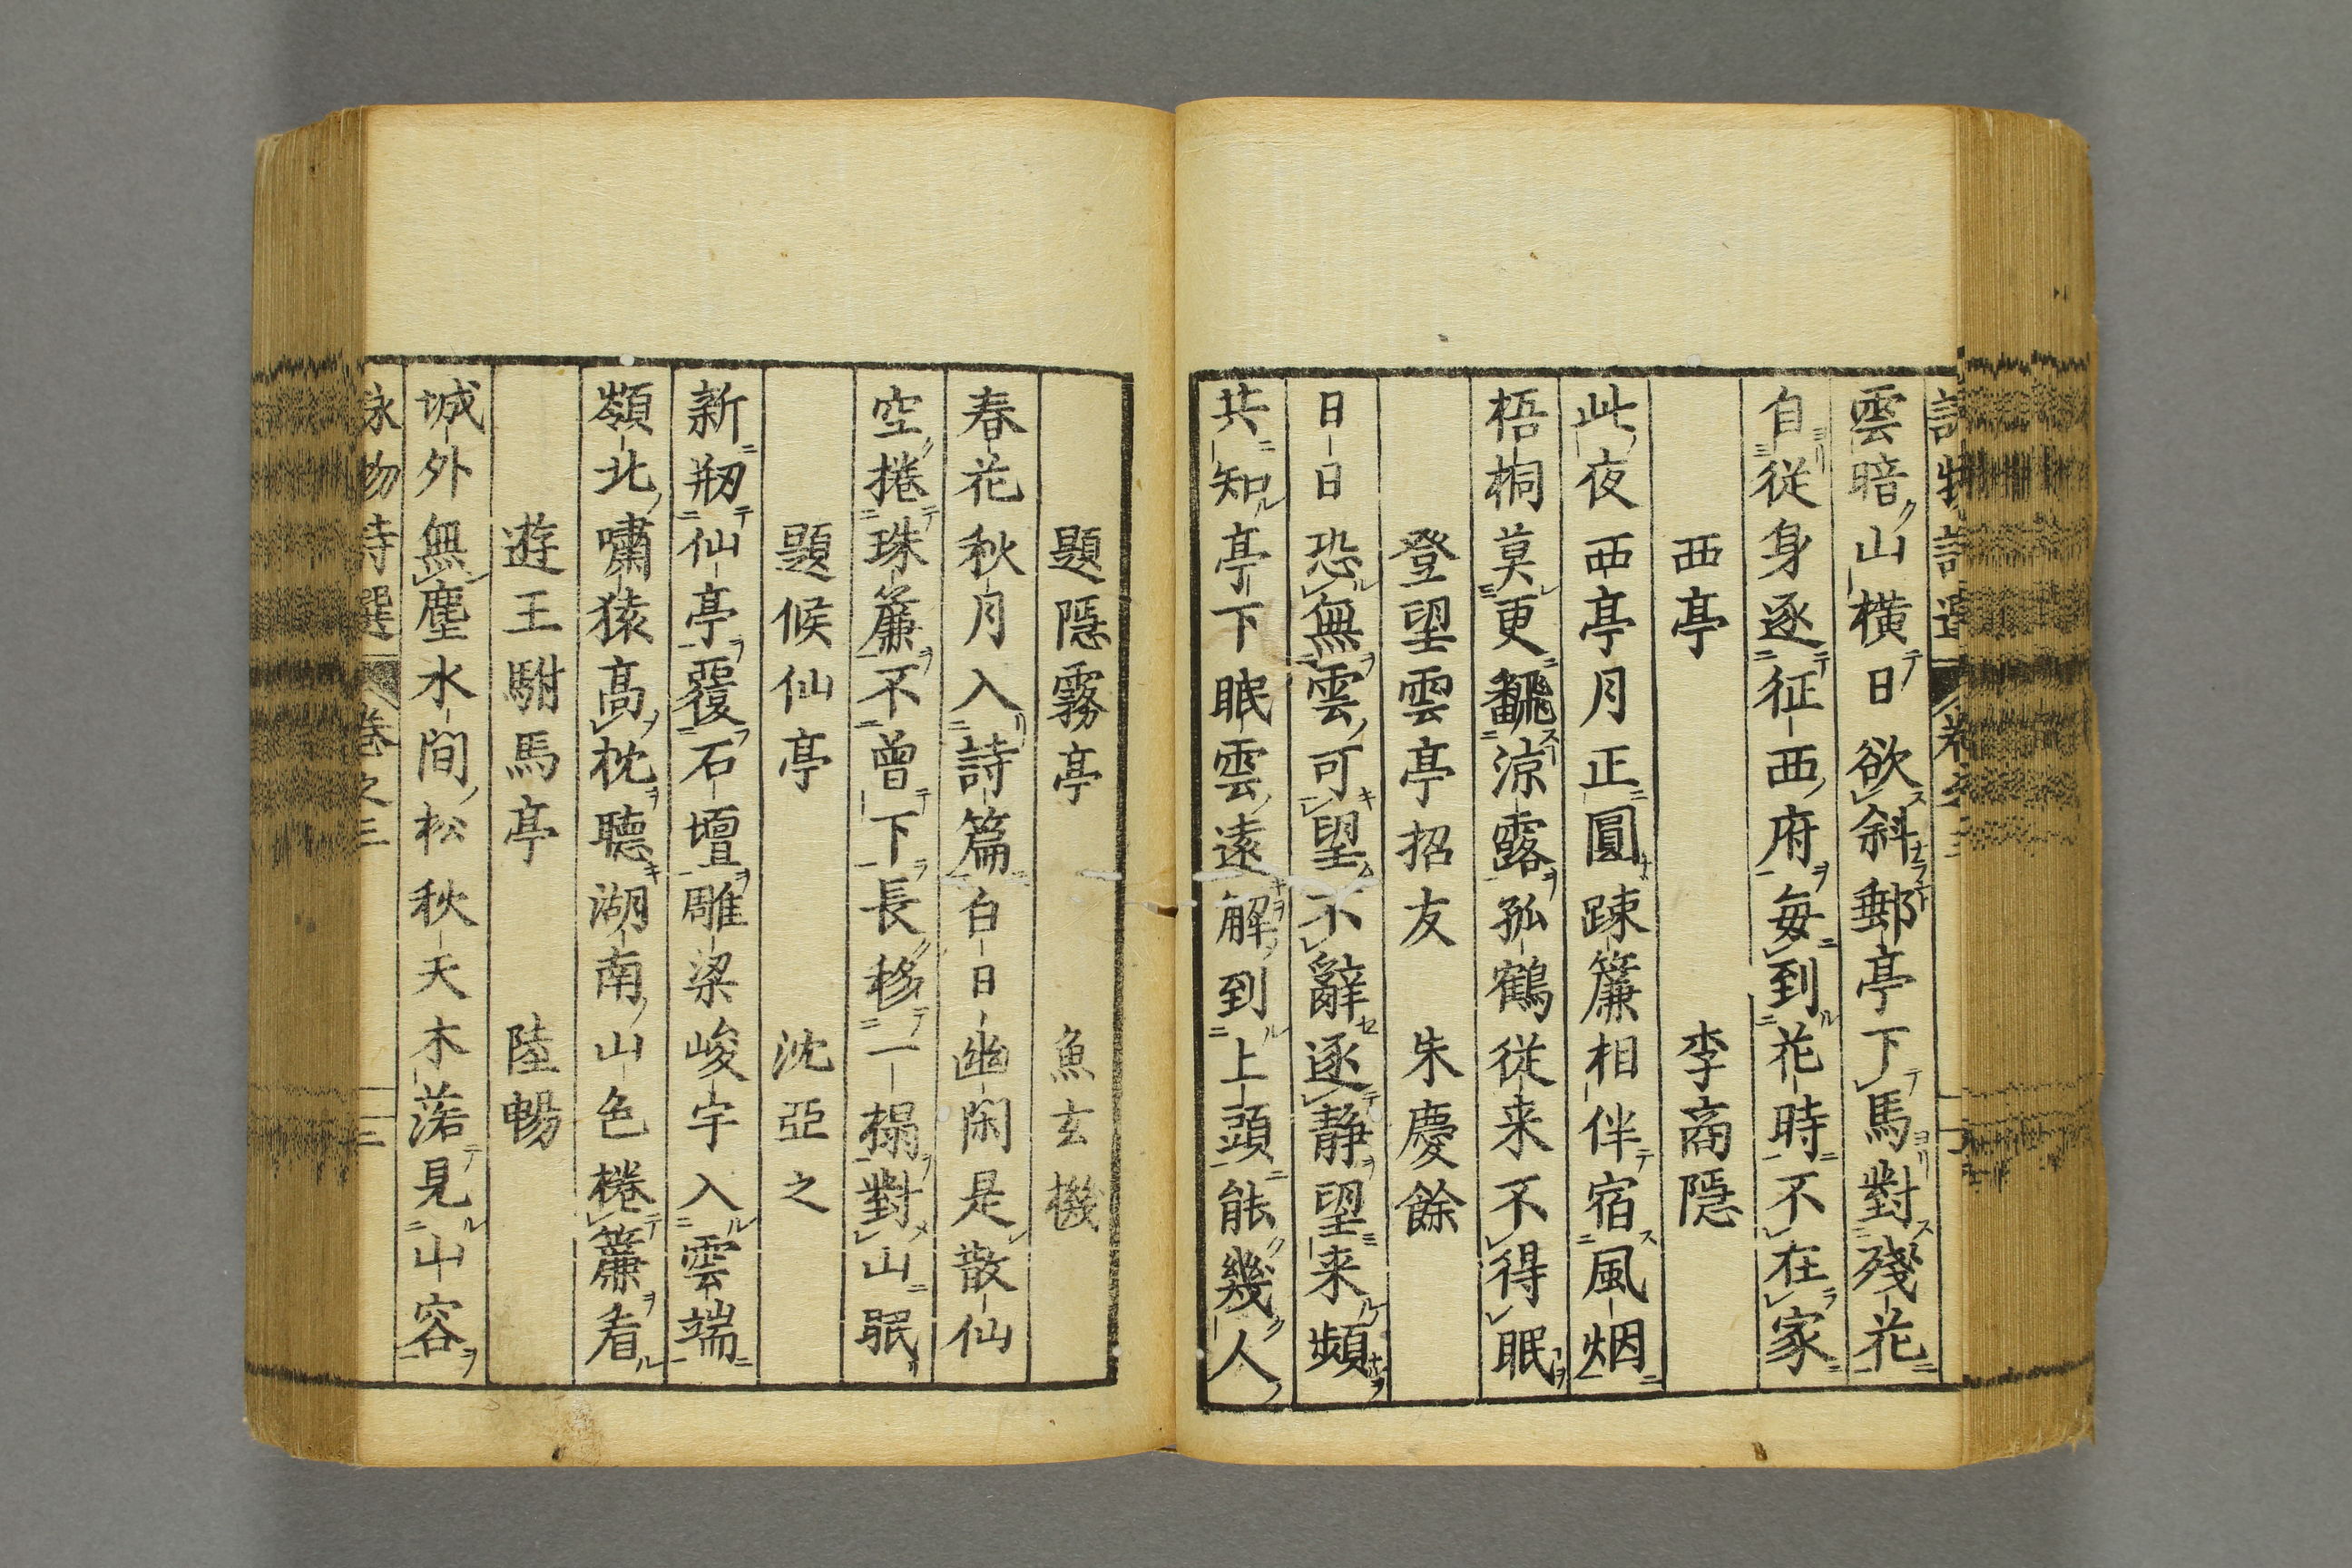 雲暗山橫日欲斜郵亭下馬對殘花
自從身逐征西府每到花時不在家
西亭 李商隱
此夜西亭月正圓踈簾相伴宿風烟
梧桐莫更飜涼露孤鶴從来不得眠
登望雲亭招友 朱慶餘
日日恐無雲可望不辭逐靜望来頻
共知亭下眠雲遠解到上頭能幾人
題隱霧亭 魚玄機
春花秋月入詩篇白日幽閑是散仙
空捲珠簾不曾下長移一榻對山眠
題候仙亭 沈亞之
新剏仙亭覆石壇雕梁峻宇入雲端
嶺北嘯猿高枕聽湖南山色捲簾看
遊王駙馬亭 陸暢
城外無塵水間松秋天木落見山容
詠物詩選 卷之三